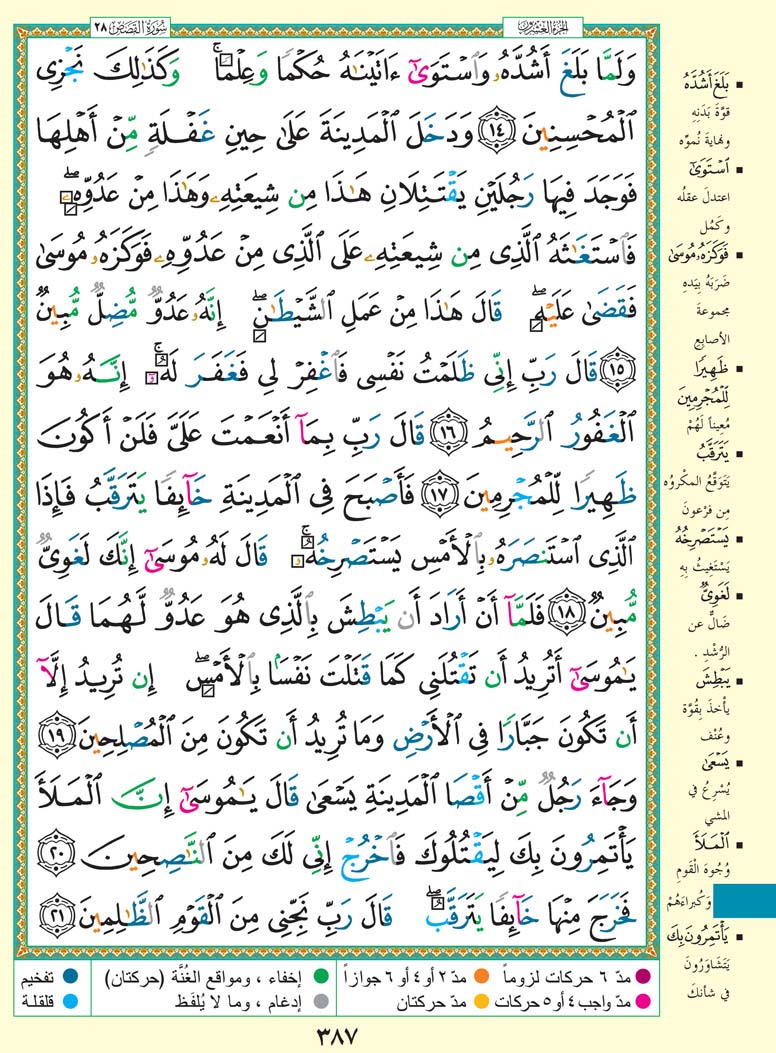 الجزء العشرون
سورة القصص ٢٨
وَلَمَّا بَلَغَ أَشُدَّهُۥ وَٱسْتَوَىٰٓ ءَاتَيْنَٰهُ حُكْمًا وَعِلْمًا ۚ وَكَذَٰلِكَ نَجْزِى
ٱلْمُحْسِنِينَ ١٤ وَدَخَلَ ٱلْمَدِينَةَ عَلَىٰ حِينِ غَفْلَةٍ مِّنْ أَهْلِهَا
فَوَجَدَ فِيهَا رَجُلَيْنِ يَقْتَتِلَانِ هَٰذَا مِن شِيعَتِهِۦ وَهَٰذَا مِنْ عَدُوِّهِۦ ۖ
فَٱسْتَغَٰثَهُ ٱلَّذِى مِن شِيعَتِهِۦ عَلَى ٱلَّذِى مِنْ عَدُوِّهِۦ فَوَكَزَهُۥ مُوسَىٰ
فَقَضَىٰ عَلَيْهِ ۖ قَالَ هَٰذَا مِنْ عَمَلِ ٱلشَّيْطَٰنِ ۖ إِنَّهُۥ عَدُوٌّ مُّضِلٌّ مُّبِينٌ
١٥ قَالَ رَبِّ إِنِّى ظَلَمْتُ نَفْسِى فَٱغْفِرْ لِى فَغَفَرَ لَهُۥٓ ۚ إِنَّهُۥ هُوَ
ٱلْغَفُورُ ٱلرَّحِيمُ ١٦ قَالَ رَبِّ بِمَآ أَنْعَمْتَ عَلَىَّ فَلَنْ أَكُونَ
ظَهِيرًا لِّلْمُجْرِمِينَ ١٧ فَأَصْبَحَ فِى ٱلْمَدِينَةِ خَآئِفًا يَتَرَقَّبُ فَإِذَا
ٱلَّذِى ٱسْتَنصَرَهُۥ بِٱلْأَمْسِ يَسْتَصْرِخُهُۥ ۚ قَالَ لَهُۥ مُوسَىٰٓ إِنَّكَ لَغَوِىٌّ
مُّبِينٌ ١٨ فَلَمَّآ أَنْ أَرَادَ أَن يَبْطِشَ بِٱلَّذِى هُوَ عَدُوٌّ لَّهُمَا قَالَ
يَٰمُوسَىٰٓ أَتُرِيدُ أَن تَقْتُلَنِى كَمَا قَتَلْتَ نَفْسًۢا بِٱلْأَمْسِ ۖ إِن تُرِيدُ إِلَّآ
أَن تَكُونَ جَبَّارًا فِى ٱلْأَرْضِ وَمَا تُرِيدُ أَن تَكُونَ مِنَ ٱلْمُصْلِحِينَ ١٩
وَجَآءَ رَجُلٌ مِّنْ أَقْصَا ٱلْمَدِينَةِ يَسْعَىٰ قَالَ يَٰمُوسَىٰٓ إِنَّ ٱلْمَلَأَ
يَأْتَمِرُونَ بِكَ لِيَقْتُلُوكَ فَٱخْرُجْ إِنِّى لَكَ مِنَ ٱلنَّٰصِحِينَ ٢٠
فَخَرَجَ مِنْهَا خَآئِفًا يَتَرَقَّبُ ۖ قَالَ رَبِّ نَجِّنِى مِنَ ٱلْقَوْمِ ٱلظَّٰلِمِينَ ٢١
بَلَغَ أَشُدَّهُ
قوّةَ بَدَنِهِ
ونهايةَ نُموّه
ٱسْتَوَىٰٓ
اعتدلَ عقلُه
وكَمُل
فَوَكَزَهُۥ مُوسَىٰ
ضَرَبَهُ بيَدِهِ
مجموعةَ
الأصابِع
ظَهِيرًا
لِّلْمُجْرِمِينَ
مُعيناً لَهُمْ
يَتَرَقَّبُ
يَتَوَقَّعُ المكْروُه
مِن فِرْعونَ
يَسْتَصْرِخُهُ
يَسْتَغيثُ بِهِ
لَغَوِىٌّ
ضَالٌّ عن
الرُّشْدِ .
يَبْطِشَ
يأخذَ بِقُوَّة
وعُنْف
يَسْعَىٰ
يُسْرِعُ في
المشي
ٱلْمَلَأَ
وُجُوهَ الْقَومِ
وَكُبراءَهُمْ
يَأْتَمِرُونَ بِكَ
يَتَشَاوَرُونَ
في شأنكَ
مدّ ٦ حركات لزوماً
مدّ ٢ أو ٤ أو ٦ جوازاً
إخفاء ، ومواقع الغُنَّة (حركتان)
تفخيم
مدّ واجب ٤ أو ٥ حركات
مدّ حركتان
إدغام ، وما لا يُلفَظ
قلقلة
٣٨٧